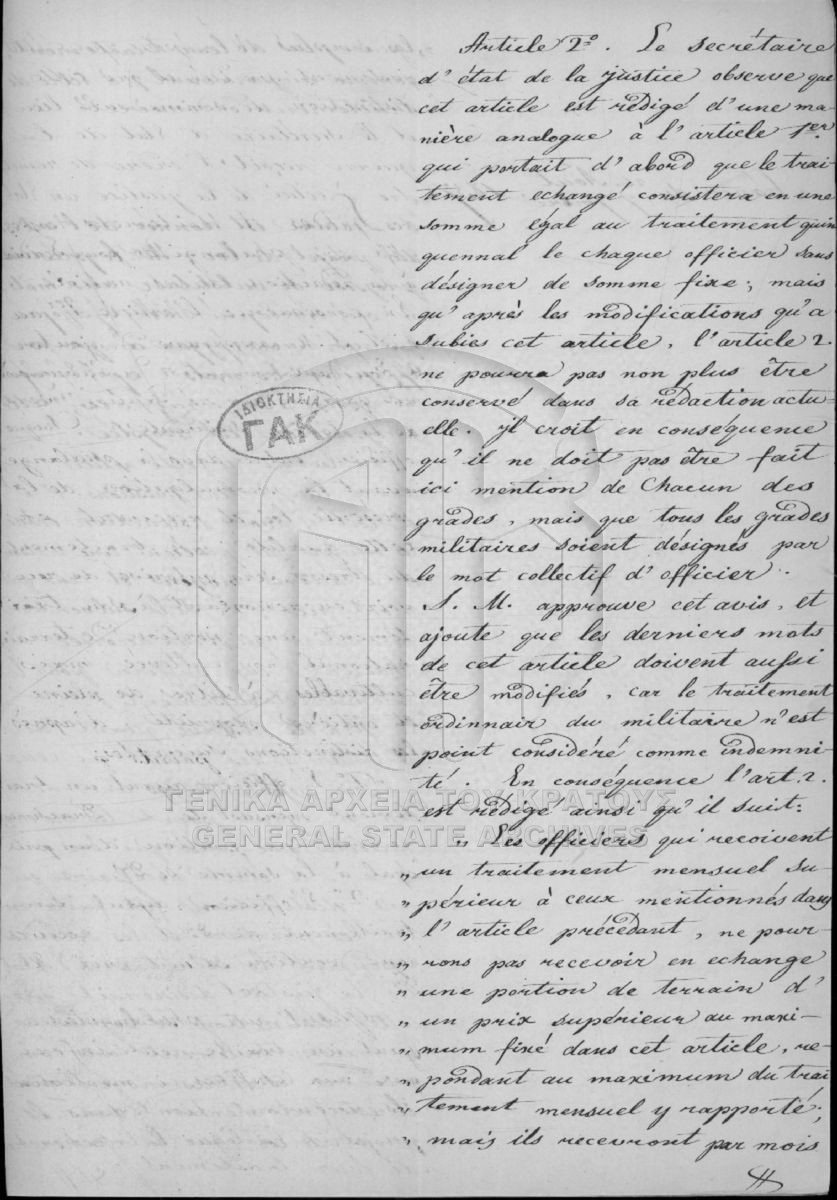 Article 2º. Le secrétaire
d'état de la justice observe que
cet article est rédigé d'une ma
nière analogue à l'article 1er
qui portait d'abord que le trai-
tement echangé consistera en une
somme égal au traitement quin
quennal le chaque officier sans
désigner de somme fixe; mais
qu'après les modifications qu'a
subies cet article, l'article 2.
ne pourra pas non plus être
conservé dans sa rédaction actu-
elle. Il croit en conséquence
qu'il ne doit pas être fait
ici mention de Chacun des
grades, mais que tous les grades
militaires soient désignés par
le mot collectif d'officier.
S. M. approuve cet avis, et
ajoute que les derniers mots
de cet article doivent aussi
être modifiés, car le traitement
ordinnair du militaire n'est
point considéré comme indemni-
té. En conséquence l'art. 2.
est rédigé ainsi qu'il suit:
„ Les officiers qui recoivent
„ un traitement mensuel su-
„ périeur à ceux mentionnés dans
„ l'article précédant, ne pour-
„ rons pas recevoir en echange
„ une portion de terrain d'
„ un prix supérieur au maxi-
„ mum fixé dans cet article, re-
„ pondant au maximum du trai
„ tement mensuel y rapporté;
„ mais ils recevront par mois
ΙΔΙΟΚΤΗΣΙΑ
ΓΑΚ
ΓΕΝΙΚΑ ΑΡΧΕΙΑ ΤΟΥ ΚΡΑΤΟΥΣ
GENERAL STATE ARCHIVES